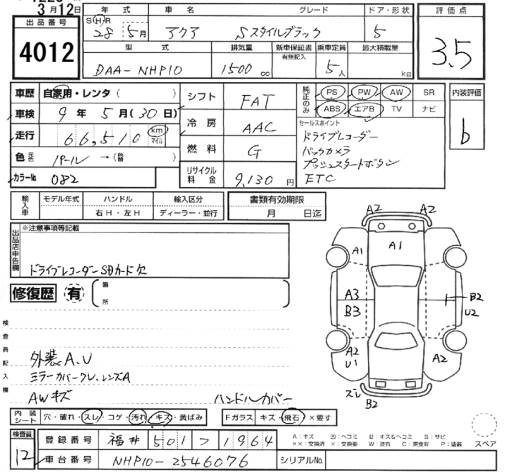 3月12日
出品番号
4012
年式 車名 グレード ドア・形状
S(H)R
28年5月 アクア Sスタイルブラック 5
型式 排気量 新車保証書 有無記入 乗車定員 最大積載量
DAA-NHP10 1500cc 5人 kg
評価点
3.5
車歴 自家用・レンタ( )
車検 9年5月(30日)
走行 66,510 km マイル
色 パール → (替 )
カラー№ 082
シフト FAT
冷房 AAC
燃料 G
リサイクル料金 9,130円
純正のみ PS PW AW SR
ABS エアB TV ナビ
セールスポイント
ドライブレコーダー
バックカメラ
プッシュスタートボタン
ETC
内装評価
b
輸入車 モデル年式 ハンドル 輸入区分
右H・左H ディーラー・並行
書類有効期限
月 日迄
出品店申告欄
※注意事項等記載
ドライブレコーダーSDカード欠
修復歴 有 箇所
検査員記入欄
外装A.U
ミラーカバークU.レンズA
AWキズ
ハンドルカバー
A2 A2
A1 A1
A3
B3
B2
U2
A2
U1
A2
ズレ
B2
内装シート 穴・破れ・スレ コゲ・汚れ・キズ・黄ばみ
Fガラス キズ・飛石・×要す
検査員 12
登録番号 福井 501 つ 1964
車台番号 NHP10-2546076 シリアル№
A：キズ U：ヘコミ B：キズ&ヘコミ S：サビ
スペア